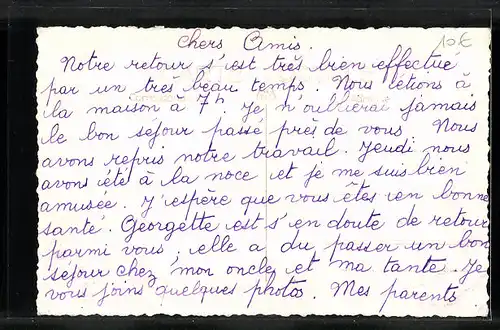 Chers Amis.
10€
Notre retour s'est très bien effectué
par un très beau temps. Nous étions à
la maison à 7h. Je n'oublierai jamais
le bon séjour passé près de vous Nous
avons repris notre travail. Jeudi nous
avons été à la noce et je me suis bien
amusée. J'espère que vous êtes en bonne
santé. Georgette est s'en doute de retour
parmi vous, elle a du passer un bon
séjour chez mon oncle et ma tante. Je
vous joins quelques photos. Mes parents